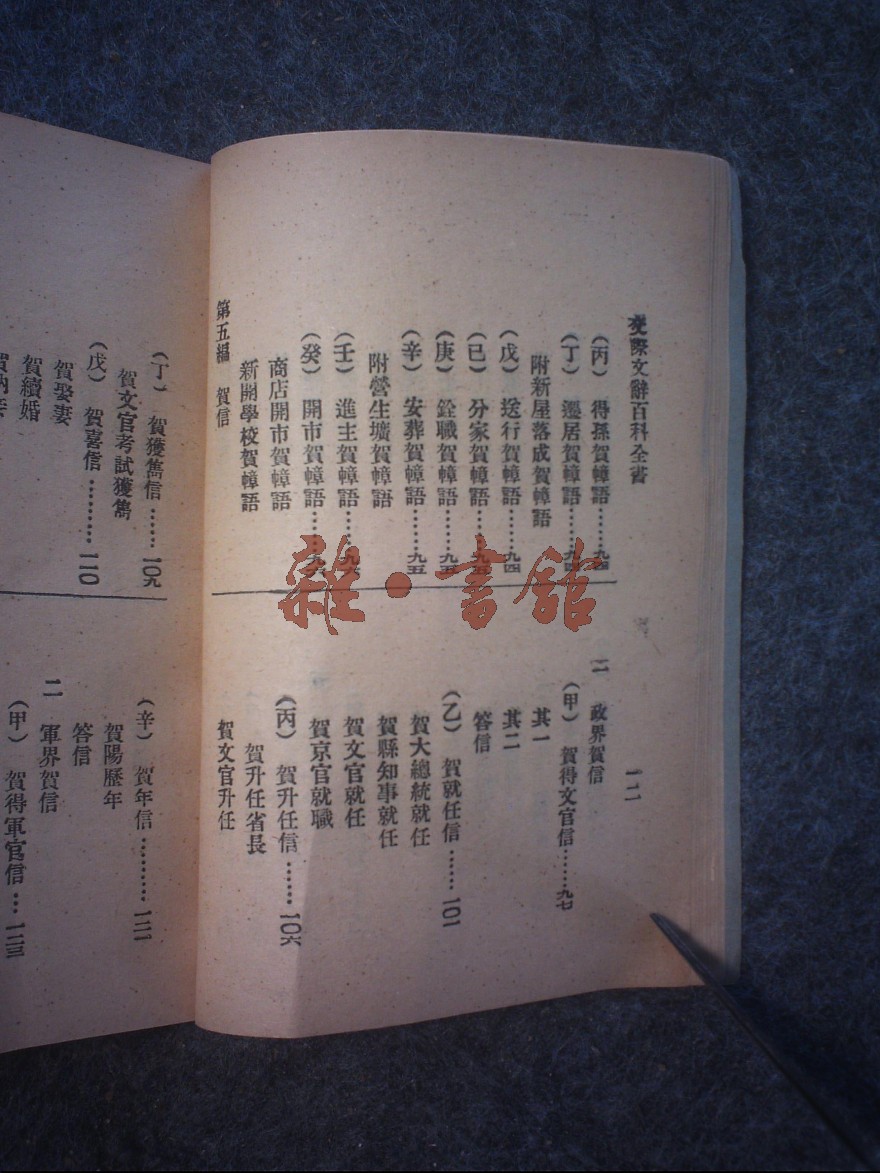 交際文辭百科全書
一二
(丙) 得孫賀幛語……九四
(丁) 遷居賀幛語……九四
附新屋落成賀幛語
(戊) 送行賀幛語……九四
(己) 分家賀幛語……九五
(庚) 銓職賀幛語……九五
(辛) 安葬賀幛語……九五
附營生壙賀幛語
(壬) 進主賀幛語……九六
(癸) 開市賀幛語……九六
商店開市賀幛語
新開學校賀幛語
第五編 賀信
一 政界賀信
(甲) 賀得文官信……九七
其一
其二
答信
(乙) 賀就任信……一〇一
賀大總統就任
賀縣知事就任
賀文官就任
賀京官就職
(丙) 賀升任信……一〇六
賀升任省長
賀文官升任
(丁) 賀獲雋信……一〇九
賀文官考試獲雋
(戊) 賀喜信………一一〇
賀娶妻
賀續婚
(辛) 賀年信………一二一
賀陽歷年
答信
二 軍界賀信
(甲) 賀得軍官信…一二三
雜·書館